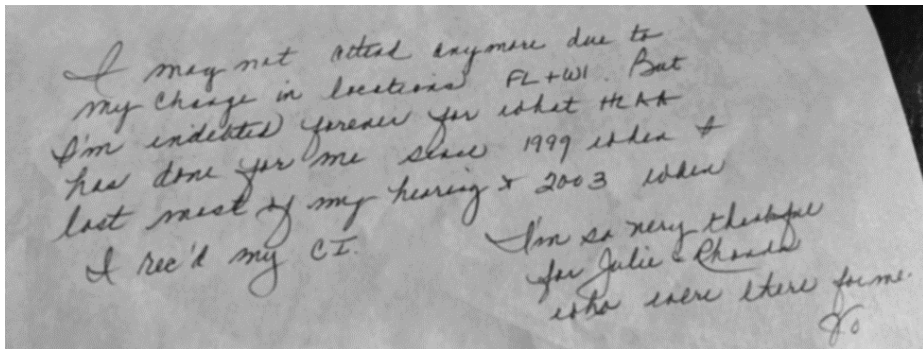 I may not attend anymore due to
my change in locations FL + WI. But
I'm indebted forever for what HLAA
has done for me since 1999 when I
lost most of my hearing & 2003 when
I rec'd my CI.
I'm so very thankful
for Julie & Rhonda
who were there for me.
Jo